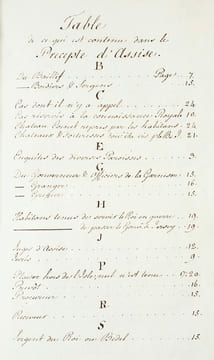 Table
de ce qui est contenu dans le
Precepte d'Assise.
B
Du Bailiff Page 7.
— Bordiers & Sergens 15.
C
Cas dont il n'y a appel 24.
Cas réservés à la connaissance Royale 10.
Chateau Cornet repris par les habitans 24.
E
Enquêtes des diverses Paroisses 3.
G
Du Gouverneur & Officiers de la Garnison 15.
— Granger 16.
— Greffier 15.
H
Habitans tenus de servir le Roi en guerre 19.
de passer le Gouvr à Jersey 19.
J
Juges d'Assise 12.
Jurés 9.
P
Plaider hors de l'Isle, nul n'est tenu 17. 20.
Prévôt 16.
Procureur 15.
R
Receveur 15.
S
Sergent du Roi ou Bedel 15.